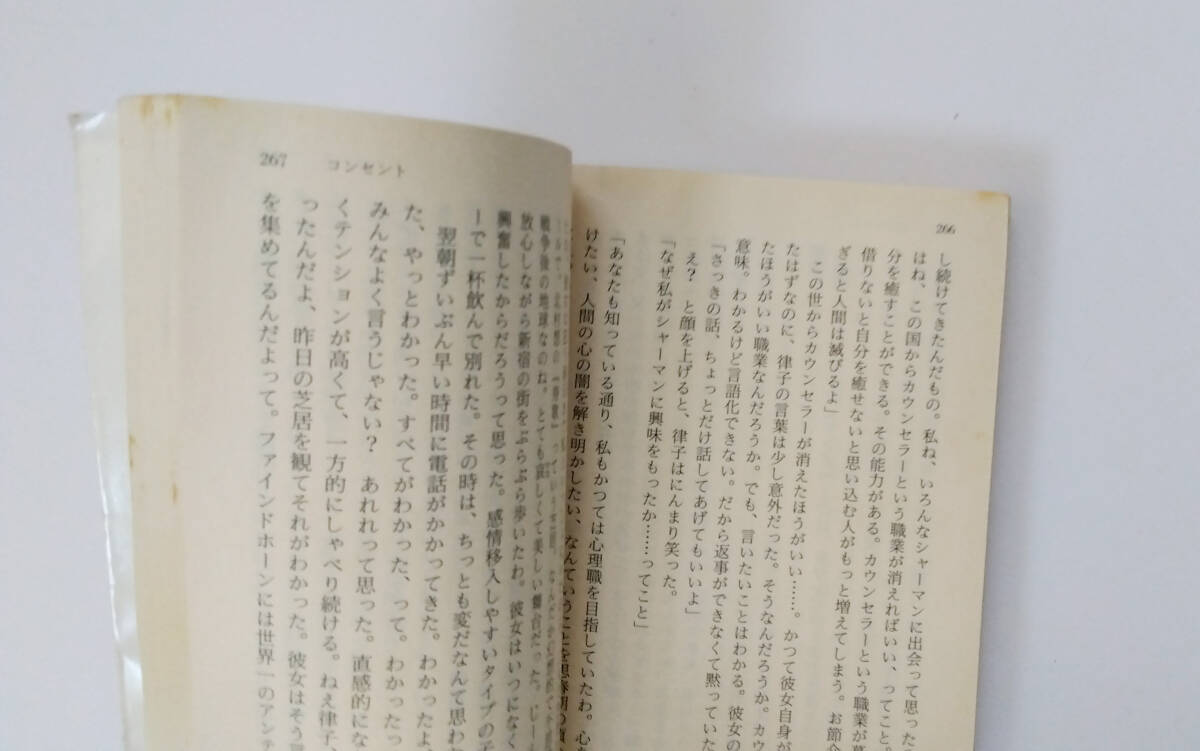 266
し続けてきたんだもの。私ね、いろんなシャーマンに出会って思った
はね、この国からカウンセラーという職業が消えればいい、ってこと。
分を癒すことができる。その能力がある。カウンセラーという職業が
借りないと自分を癒せないと思い込む人がもっと増えてしまう。お節介
ぎると人間は滅びるよ」
この世からカウンセラーが消えたほうがいい……。かつて彼女自身が
たはずなのに、律子の言葉は少し意外だった。そうなんだろうか。カウ
たほうがいい職業なんだろうか。でも、言いたいことはわかる。彼女の
意味。わかるけど言語化できない。だから返事ができなくて黙っていた
「さっきの話、ちょっとだけ話してあげてもいいよ」
え？　と顔を上げると、律子はにんまり笑った。
「なぜ私がシャーマンに興味をもったか……ってこと」
「あなたも知っている通り、私もかつては心理職を目指していたわ。心を
けたい、人間の心の闇を解き明かしたい、なんていうことを思春期の
267 コンセント
戦争後の地球なのね。とても哀しくて美しい舞台だった。
放心しながら新宿の街をぶらぶら歩いたわ。彼女はいつになく
興奮したからだろうって思った。感情移入しやすいタイプの子
ーで一杯飲んで別れた。その時は、ちっとも変だなんて思わ
翌朝ずいぶん早い時間に電話がかかってきた。わかったよ
た、やっとわかった。すべてがわかった、って。わかった
みんなよく言うじゃない？　あれれって思った。直感的にな
くテンションが高くて、一方的にしゃべり続ける。ねえ律子、
ったんだよ、昨日の芝居を観てそれがわかった。彼女はそう言
を集めてるんだよって。ファインドホーンには世界一のアンテ